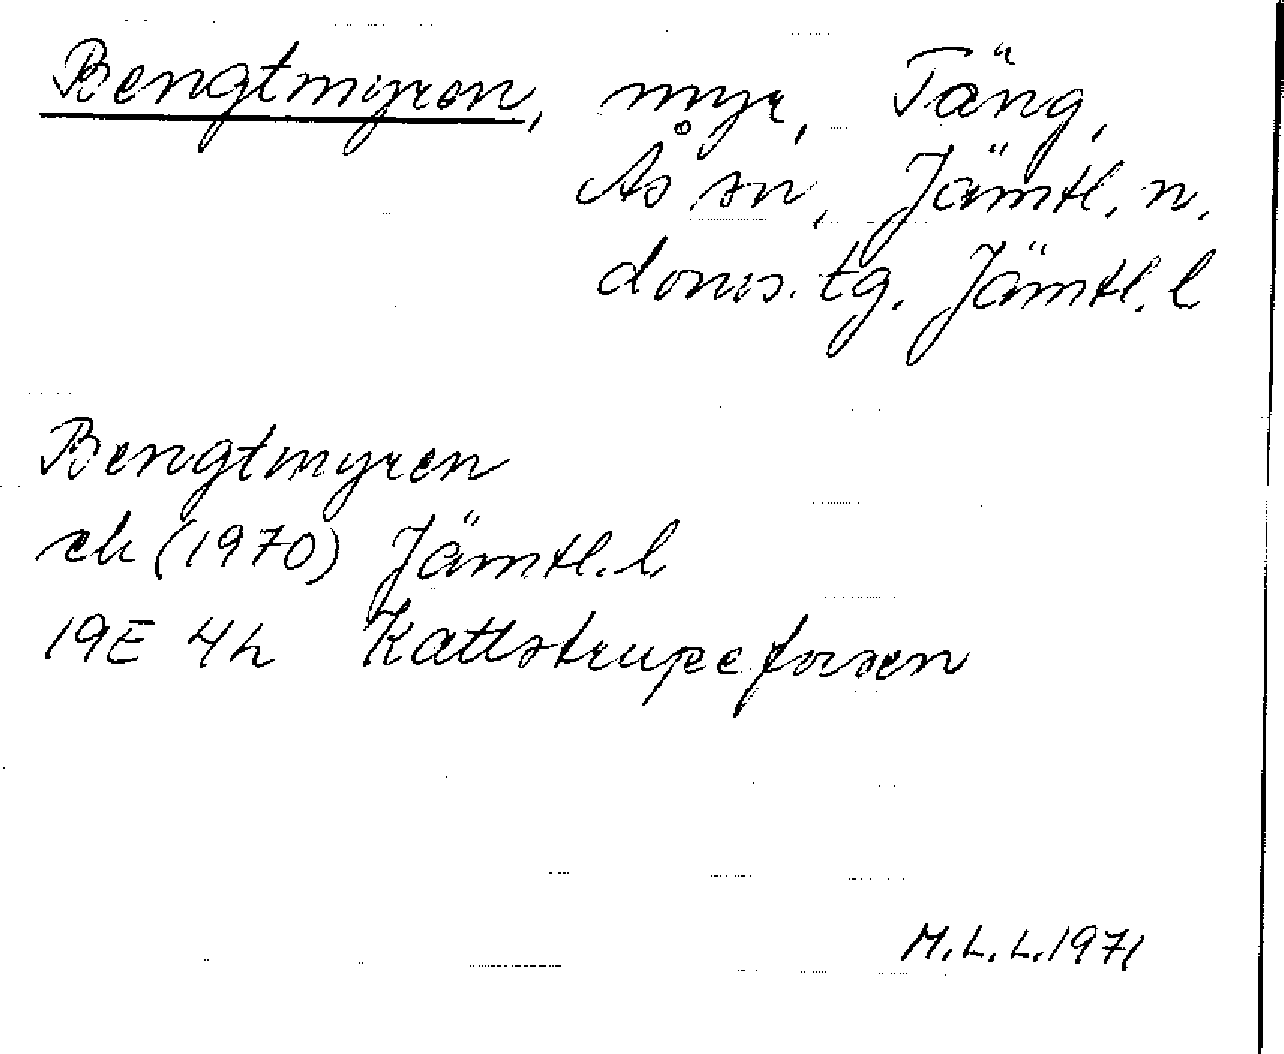 Bengtmyren, myr, Täng,
Ås sn, Jämtl. n.
doms. tg. Jämtl. l
Bengtmyren
ek (1970) Jämtl. l.
19E 4h Kattstrupeforsen
M.L.L. 1971